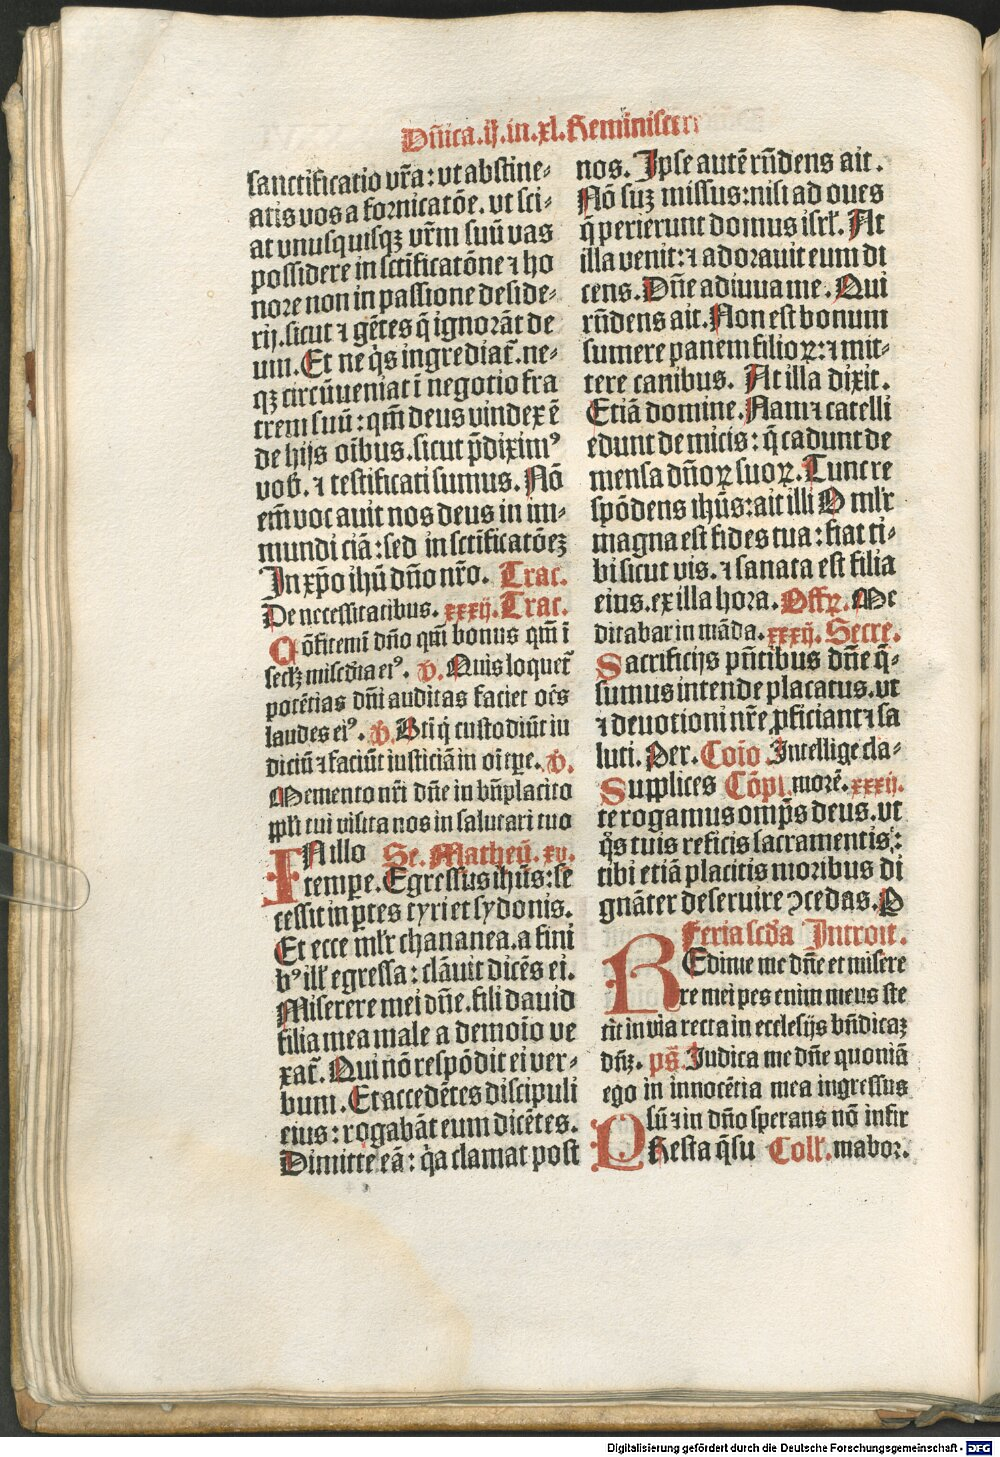 Dñica.ij.in.xl.Reminiscere
sanctificatio vr̄a: vt abstine⸗
atis vos a fornicatōe. vt sci⸗
at vnusquisqꝫ vr̄m suū vas
possidere in sctīficatōne ⁊ ho
nore non in passione deside⸗
rij. sicut ⁊ gētes q̄ ignorāt de
um. Et ne q̇s ingrediat̄. ne⸗
qꝫ circūueniat ī negotio fra
trem suū: qm̄ deus vindex ē
de hijs oībus. sicut p̄diximꝰ
vob̄. ⁊ testificati sumus. Nō
em̄ vocauit nos deus in im⸗
mundiciā: sed in sctīficatōeꝫ
In xp̄o ihū dn̄o nr̄o. Trac.
De necessitatibus. xxxij. Trac.
Cōfitemī dn̄o qm̄ bonus qm̄ ī
secl̄ꝫ misc̄dia eiꝰ. v̄. Quis loquet̄
potētias dn̄i auditas faciet oēs
laudes eiꝰ. v̄. Bti q̄ custodiūt iu
diciū ⁊ faciūt iusticiā in oī tꝑe. v̄.
Memento nr̄i dn̄e in bn̄placito
ppl̄i tui visita nos in salutari tuo
IN illo Sc. Matheū. xv.
tempe. Egressus ihūs: se
cessit in ꝑtes tyri et sydonis.
Et ecce ml̄r chananea. a fini
bꝰ ill̄ egressa: clāuit dicēs ei.
Miserere mei dn̄e. fili dauid
filia mea male a demoīo ve
xat̄. Qui nō respōdit ei ver⸗
bum. Et accedētes discipuli
eius: rogabāt eum dicētes.
Dimitte eā: q̄a clamat post
nos. Ipse autē rn̄dens ait.
Nō suꝫ missus: nisi ad oues
q̄ perierunt domus isrl̄. At
illa venit: ⁊ adorauit eum di
cens. Dn̄e adiuua me. Qui
rn̄dens ait. Non est bonum
sumere panem filioꝝ: ⁊ mit⸗
tere canibus. At illa dixit.
Etiā domine. Nam ⁊ catelli
edunt de micis: q̄ cadunt de
mensa dn̄oꝝ suoꝝ. Tunc re
spōdens ihūs: ait illi O ml̄r
magna est fides tua: fiat ti⸗
bi sicut vis. ⁊ sanata est filia
eius. ex illa hora. Offꝝ. Me
ditabar in māda. xxxij. Secre.
Sacrificijs pn̄tibus dn̄e q̄⸗
sumus intende placatus. vt
⁊ deuotioni nr̄e ꝓficiant ⁊ sa
luti. Per. Coīo Intellige cla⸗
Supplices Cōpl. morē. xxxij.
te rogamus omp̄s deus. vt
q̇s tuis reficis sacramentis:
tibi etiā placitis moribus di
gnāter deseruire ↄcedas. P
Feria scd̄a Introit.
REdime me dn̄e et misere
re mei pes enim meus ste
tit in via recta in ecclesijs bn̄dicaꝫ
dn̄ꝫ. ps̄. Iudica me dn̄e quoniā
ego in innocētia mea ingressus
sū ⁊ in dn̄o sperans nō infir
PResta q̄su Coll̄. mabor.
Digitalisierung gefördert durch die Deutsche Forschungsgemeinschaft - DFG